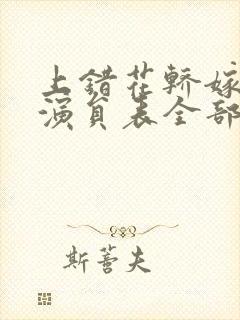 上错花轿嫁
演员表全部
斯蒏夫